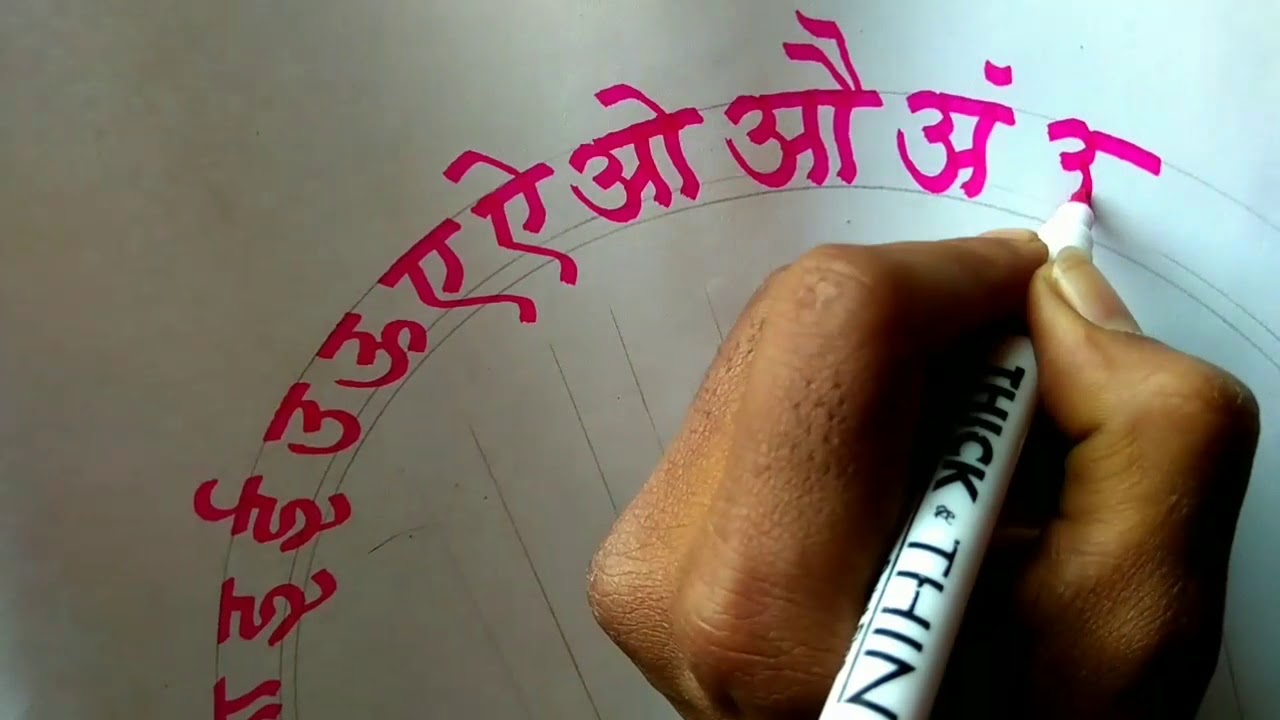 इ ई उ ऊ ए ऐ ओ औ अं
THICK & THIN